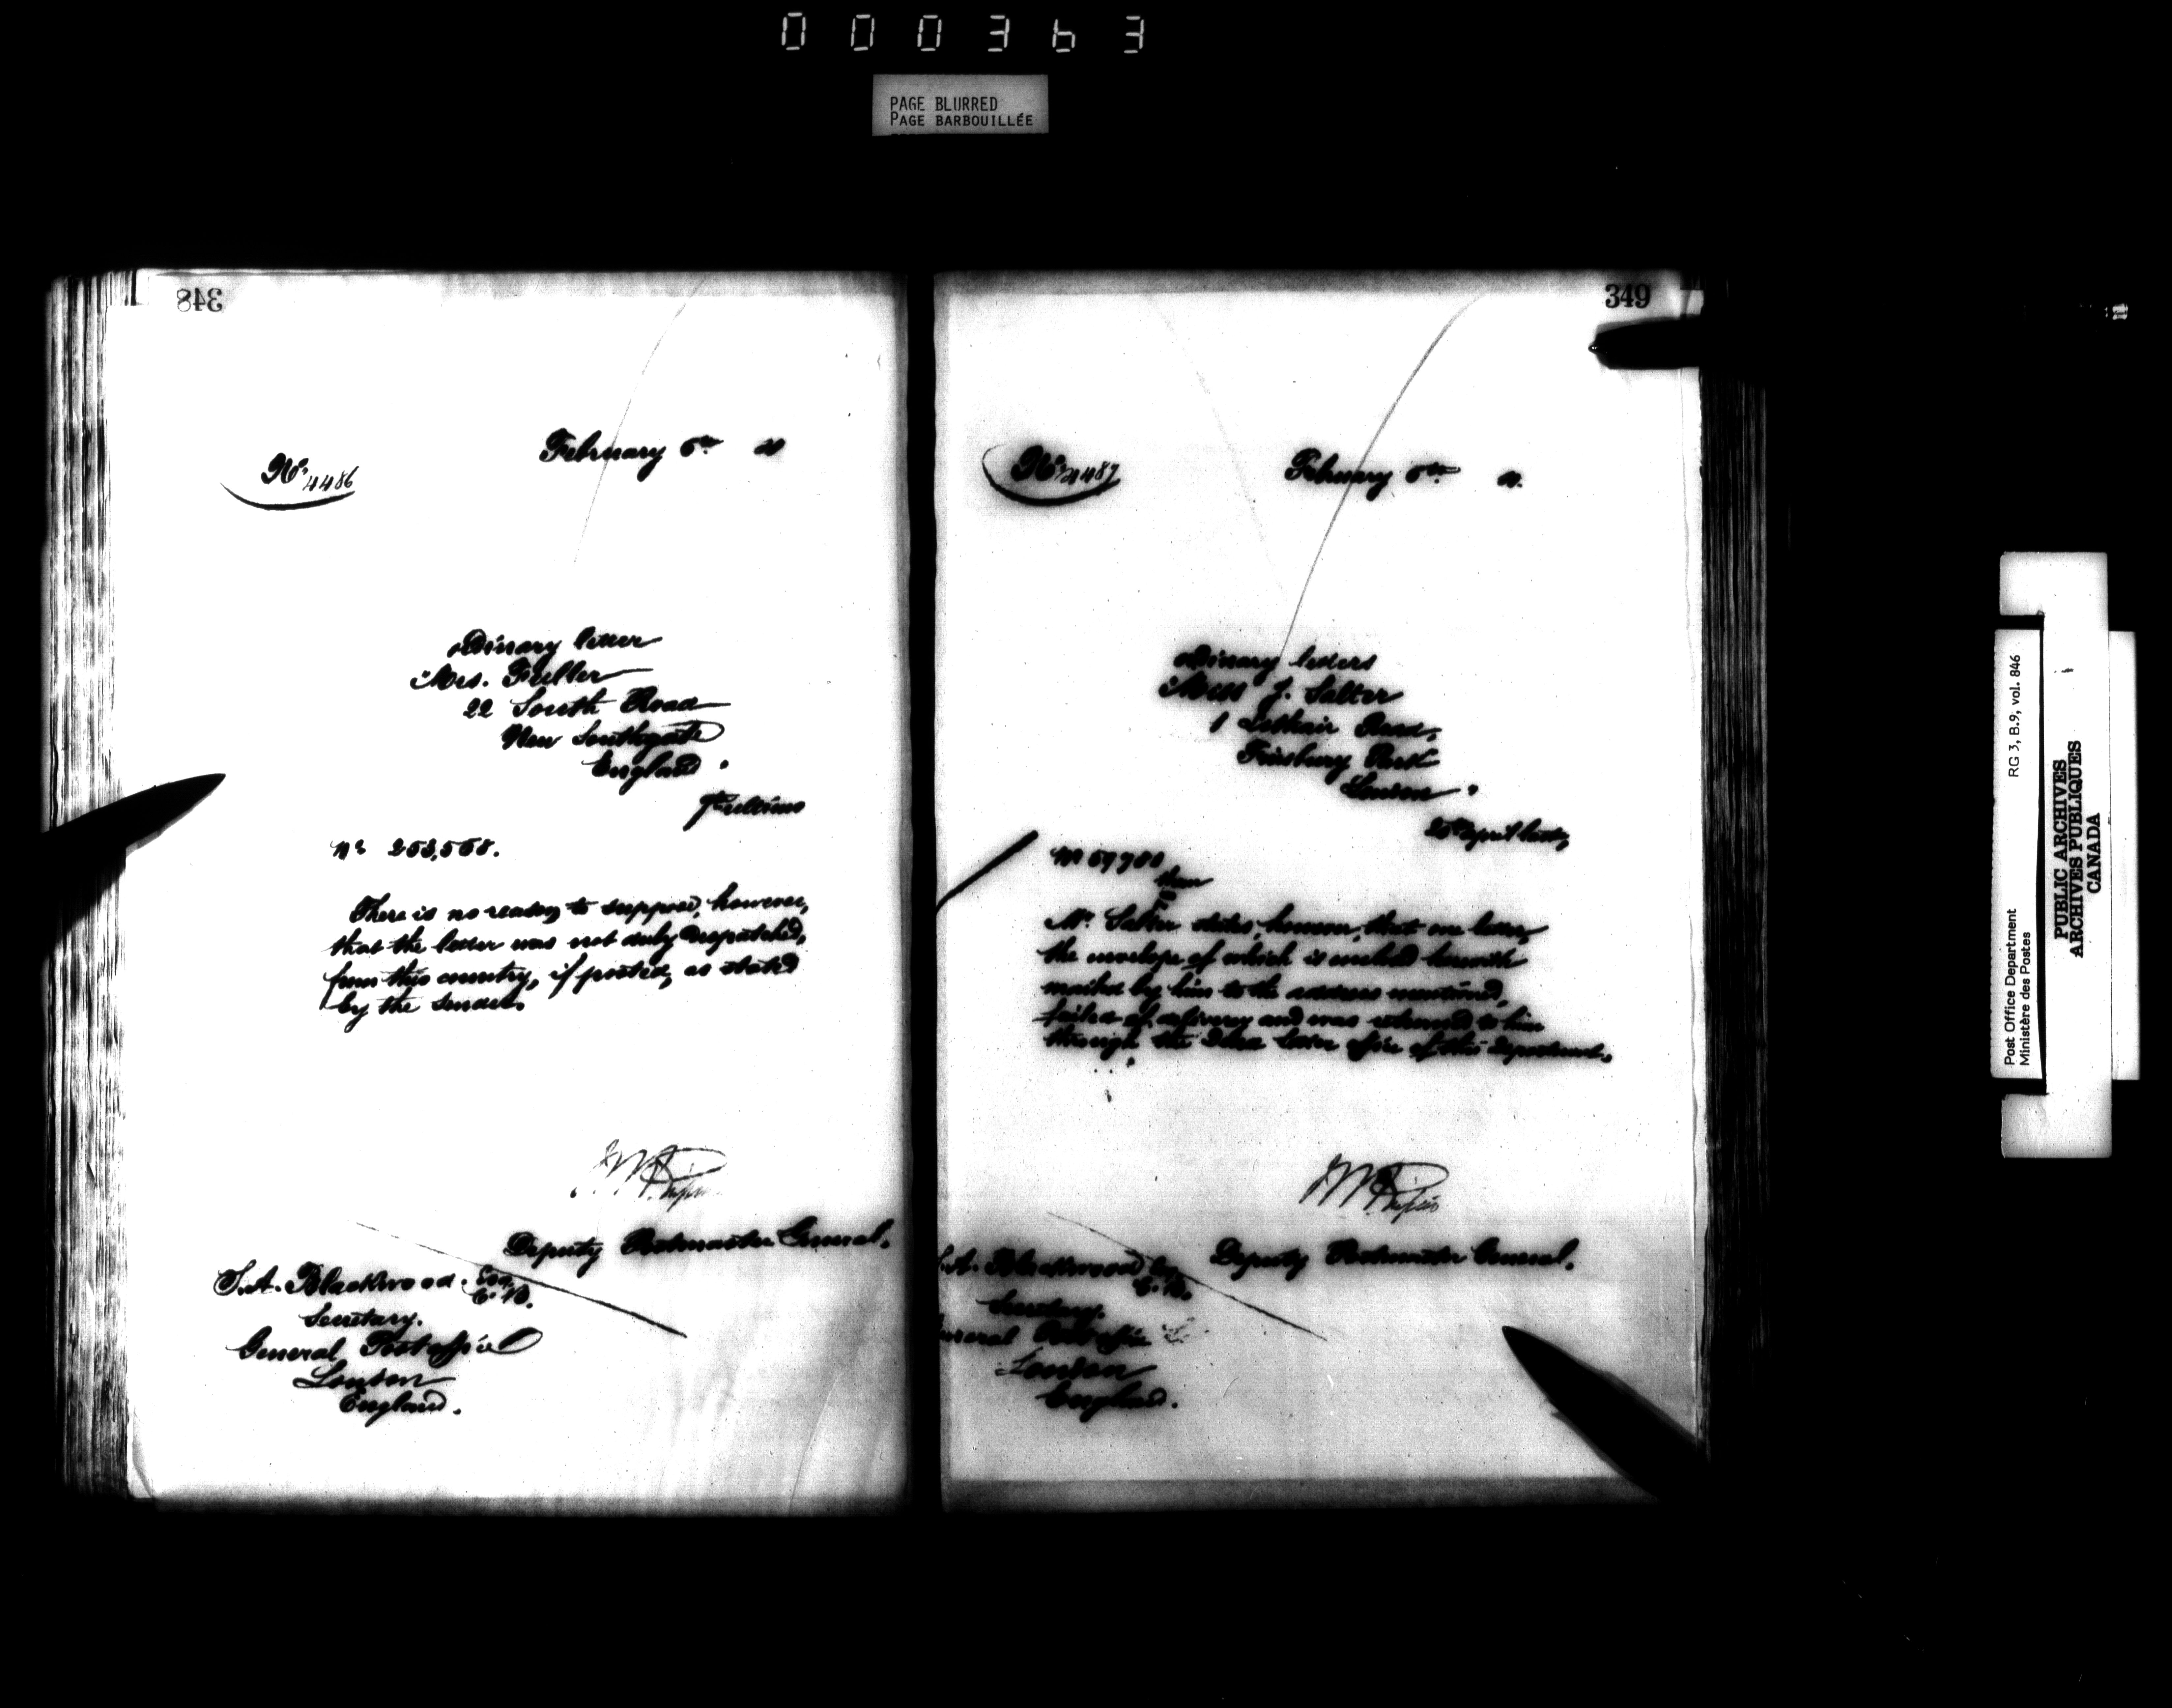 000363
PAGE BLURRED
PAGE BARBOUILLÉE
348
No. 4486
February 6th
Ordinary letter
"Mrs. Fuller
22 South Road
New Southgate
England"
7th ultimo
No 253,568.
There is no reason to suppose, however,
that the letter was not duly despatched,
from this country, if posted, as stated
by the sender.
Deputy Postmaster General.
S.A. Blackwood. Esq.
C.B.
Secretary.
General Post office
London
England.
349
No. 4487
February 6th
Ordinary letters
"Miss J. Salter
1 Lothair Road,
Finsbury Park
London"
25th April last,
No 59780
Mr. Salter states, however, that one letter,
the envelope of which is enclosed herewith
mailed by him to the address mentioned,
failed of delivery and was returned to him
through the Dead letter office of this Department.
Deputy Postmaster General.
S.A. Blackwood Esq
C.B.
Secretary.
General Post office
London
England.
Post Office Department
Ministère des Postes
RG 3, B.9, vol. 846
PUBLIC ARCHIVES
ARCHIVES PUBLIQUES
CANADA